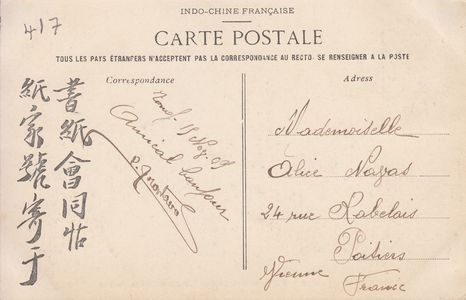 417
INDO-CHINE FRANÇAISE
CARTE POSTALE
TOUS LES PAYS ÉTRANGERS N'ACCEPTENT PAS LA CORRESPONDANCE AU RECTO. SE RENSEIGNER A LA POSTE
Correspondance
Adresse
書紙會同怗
紙家號寄于
15 09
Amical bonjour
Mademoiselle
Alice
24 rue Rabelais
Poitiers
Vienne
France